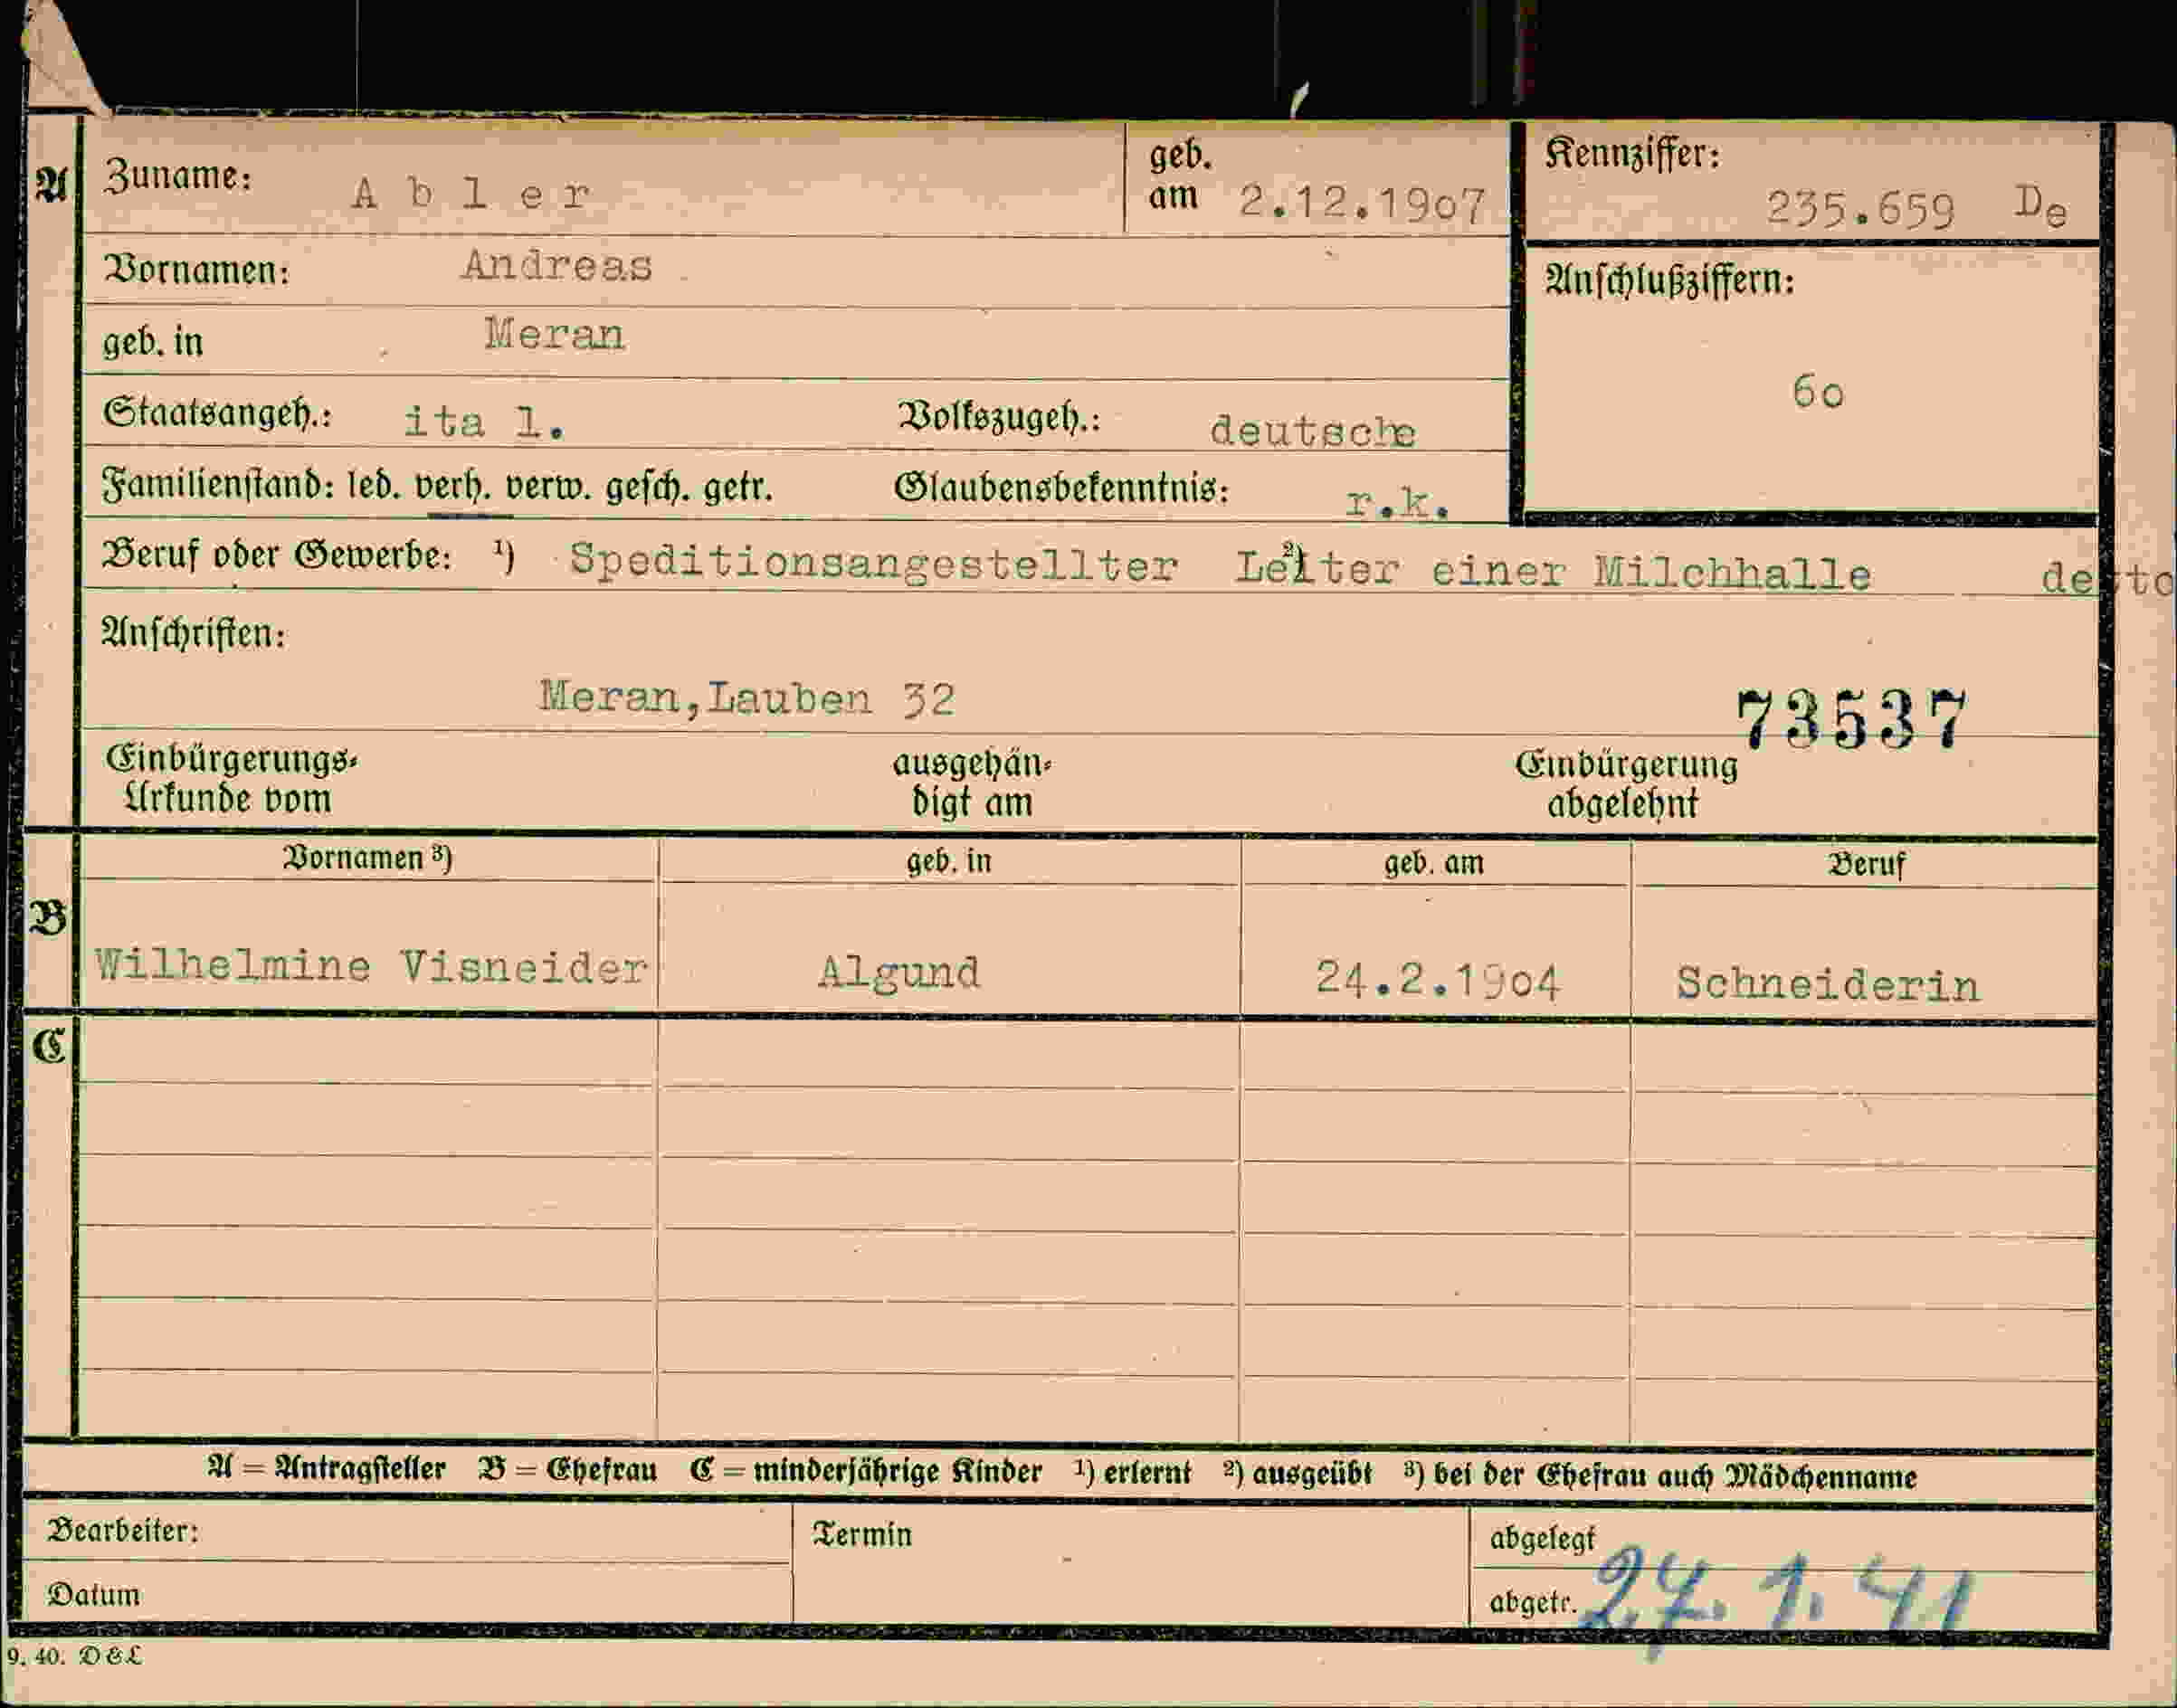 A Zuname: Abler geb. am 2.12.1907 Kennziffer: 235.659 De
Vornamen: Andreas
Anschlußziffern:
geb. in Meran
60
Staatsangeh.: ita l. Volkszugeh.: deutsche
Familienstand: led. verh. verw. gesch. getr. Glaubensbekenntnis: r.k.
Beruf oder Gewerbe: 1) Speditionsangestellter 2) Leiter einer Milchhalle
Anschriften:
Meran,Lauben 32
73537
Einbürgerungs- Urkunde vom ausgehän- digt am Einbürgerung abgelehnt
Vornamen 3) geb. in geb. am Beruf
B
Wilhelmine Visneider Algund 24.2.1904 Schneiderin
C
A = Antragsteller B = Ehefrau C = minderjährige Kinder 1) erlernt 2) ausgeübt 3) bei der Ehefrau auch Mädchenname
Bearbeiter: Termin abgelegt
Datum abgetr. 27. 1. 41
9. 40. D & L